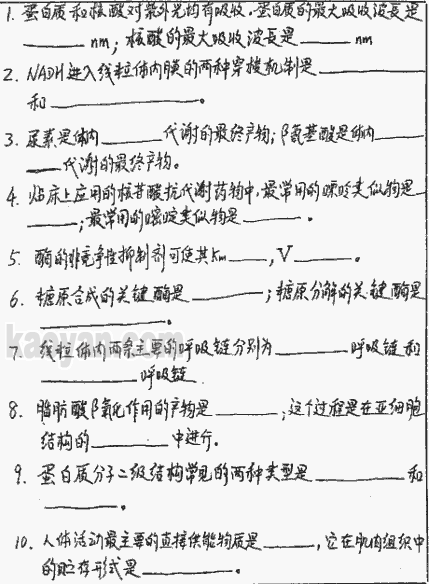 1. 蛋白质和核酸对紫外光均有吸收. 蛋白质的最大吸收波長是
______ nm; 核酸的最大吸收波長是 ______ nm
2. NADH进入线粒体内膜的两种穿梭机制是 ______
和 ______.
3. 尿素是体内 ______ 代谢的最终产物; β氨基酸是体内 ___
___ 代谢的最终产物.
4. 临床上应用的核苷酸抗代谢药物中, 最常用的嘌呤类似物是
___; 最常用的嘧啶类似物是 ______.
5. 酶的非竞争性抑制剂可使其Km ___, V ______.
6. 糖原合成的关键酶是 ______; 糖原分解的关键酶是
______.
7. 线粒体内两条主要的呼吸链分别为 ______ 呼吸链和
______ 呼吸链
8. 脂肪酸β氧化作用的产物是 ______; 这个过程是在亚细胞
结构的 ______ 中进行.
9. 蛋白质分子二级结构常见的两种类型是 ______ 和
______.
10. 人体活动最主要的直接供能物质是 ______, 它在肌肉组织中
的贮存形式是 ______.
kaoyan.com